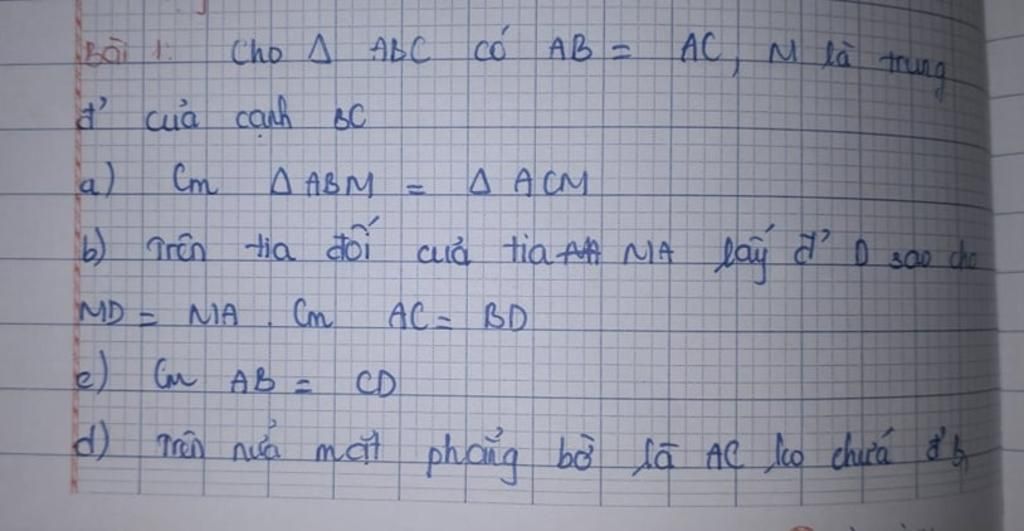 Bài 1: Cho Δ ABC có AB = AC, M là trung
đ' của cạnh BC
a) Cm Δ ABM = Δ ACM
b) Trên tia đối của tia MA lấy đ' D sao cho
MD = MA. Cm AC = BD
c) Cm AB = CD
d) Trên nửa mặt phẳng bờ là AC ko chứa đ' B